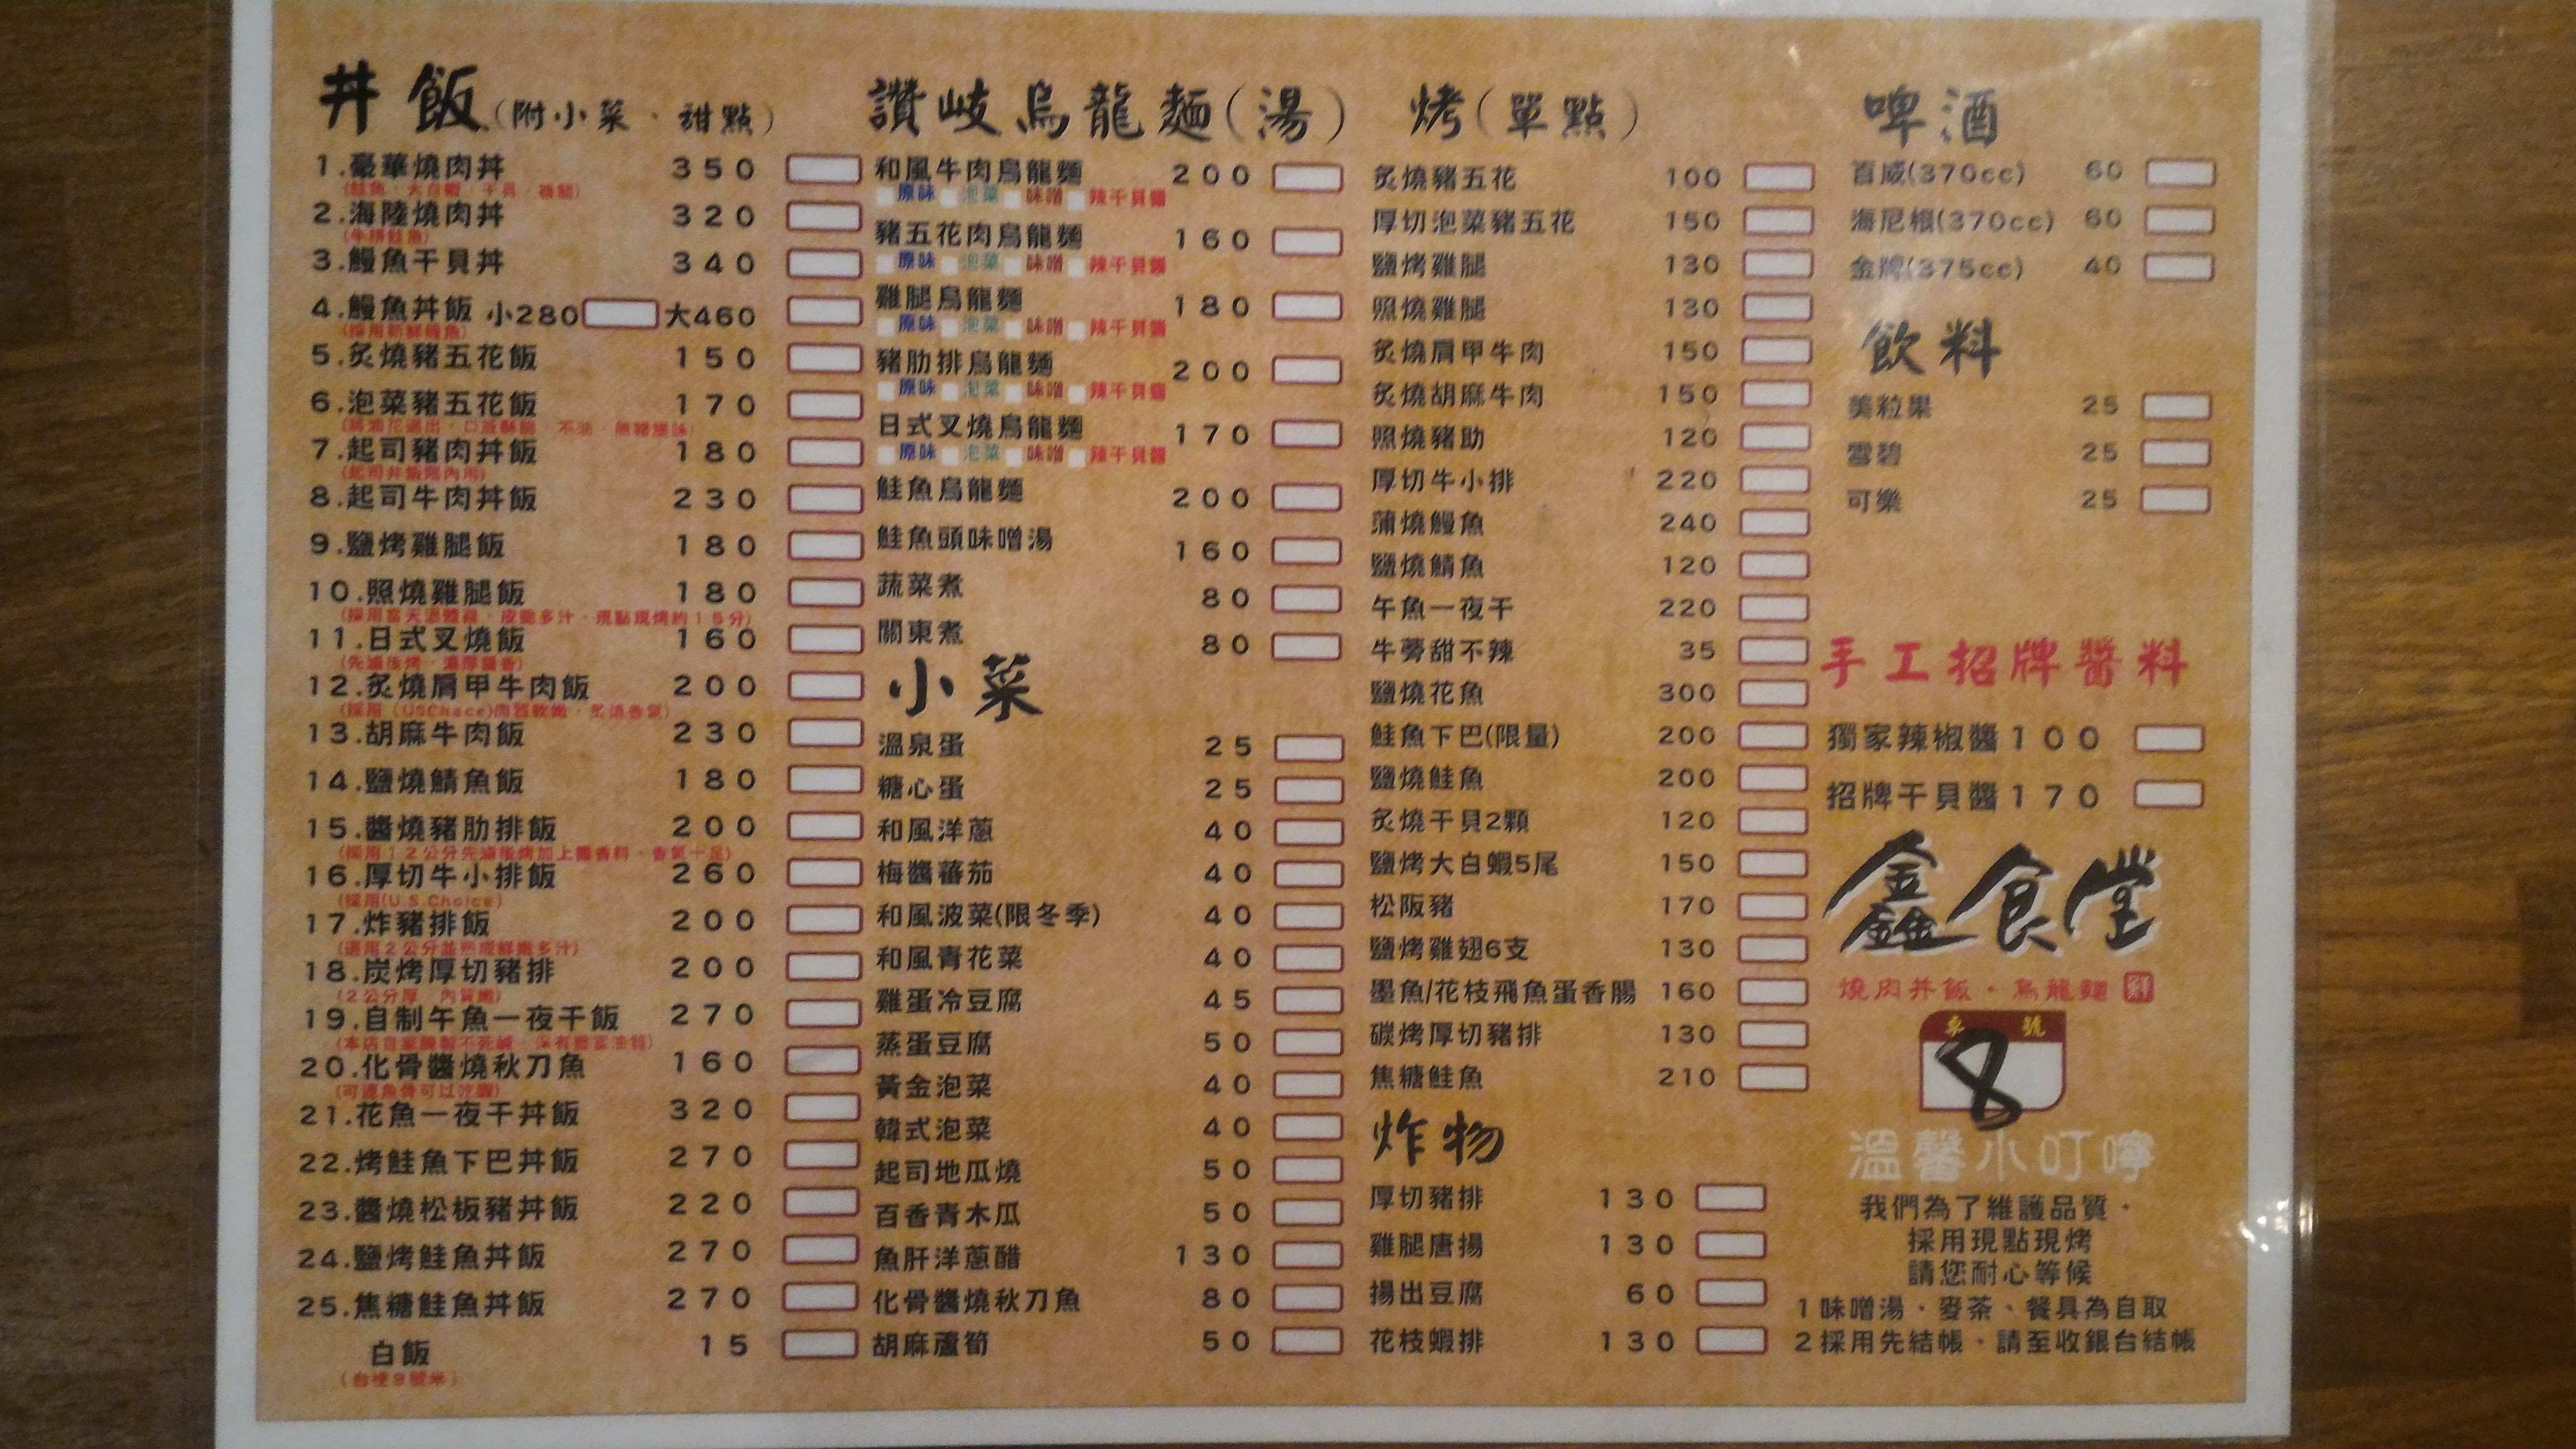 丼飯(附小菜、甜點)
1.豪華燒肉丼 350
(鮭魚、大白蝦、干貝、雞腿)
2.海陸燒肉丼 320
(牛排鮭魚)
3.鰻魚干貝丼 340
4.鰻魚丼飯 小280 大460
(採用新鮮鰻魚)
5.炙燒豬五花飯 150
6.泡菜豬五花飯 170
7.起司豬肉丼飯 180
(起司丼飯限內用)
8.起司牛肉丼飯 230
9.鹽烤雞腿飯 180
10.照燒雞腿飯 180
(採用當天溫體雞,皮脆多汁,現點現烤約15分)
11.日式叉燒飯 160
(先滷後烤,濃厚醬香)
12.炙燒肩甲牛肉飯 200
13.胡麻牛肉飯 230
14.鹽燒鯖魚飯 180
15.醬燒豬肋排飯 200
(採用12公分先滷後烤加上醬香料、香氣十足)
16.厚切牛小排飯 260
(採用(U.S.Choice)
17.炸豬排飯 200
18.炭烤厚切豬排 200
19.自制午魚一夜干飯 270
20.化骨醬燒秋刀魚 160
(可連魚骨可以吃喔)
21.花魚一夜干丼飯 320
22.烤鮭魚下巴丼飯 270
23.醬燒松板豬丼飯 220
24.鹽烤鮭魚丼飯 270
25.焦糖鮭魚丼飯 270
白飯 15
(台梗9號米)
讚岐烏龍麵(湯)
和風牛肉烏龍麵 200
原味 泡菜 味噌 辣干貝醬
豬五花肉烏龍麵 160
原味 泡菜 味噌 辣干貝醬
雞腿烏龍麵 180
原味 泡菜 味噌 辣干貝醬
豬肋排烏龍麵 200
原味 泡菜 味噌 辣干貝醬
日式叉燒烏龍麵 170
原味 泡菜 味噌 辣干貝醬
鮭魚烏龍麵 200
鮭魚頭味噌湯 160
蔬菜煮 80
關東煮 80
小菜
溫泉蛋 25
糖心蛋 25
和風洋蔥 40
梅醬蕃茄 40
和風波菜(限冬季) 40
和風青花菜 40
雞蛋冷豆腐 45
蒸蛋豆腐 50
黃金泡菜 40
韓式泡菜 40
起司地瓜燒 50
百香青木瓜 50
魚肝洋蔥醋 130
化骨醬燒秋刀魚 80
胡麻蘆筍 50
烤(單點)
炙燒豬五花 100
厚切泡菜豬五花 150
鹽烤雞腿 130
照燒雞腿 130
炙燒肩甲牛肉 150
炙燒胡麻牛肉 150
照燒豬助 120
厚切牛小排 220
蒲燒鰻魚 240
鹽燒鯖魚 120
午魚一夜干 220
牛蒡甜不辣 35
鹽燒花魚 300
鮭魚下巴(限量) 200
鹽燒鮭魚 200
炙燒干貝2顆 120
鹽烤大白蝦5尾 150
松阪豬 170
鹽烤雞翅6支 130
墨魚/花枝飛魚蛋香腸 160
碳烤厚切豬排 130
焦糖鮭魚 210
炸物
厚切豬排 130
雞腿唐揚 130
揚出豆腐 60
花枝蝦排 130
啤酒
百威(370cc) 60
海尼根(370cc) 60
金牌(375cc) 40
飲料
美粒果 25
雪碧 25
可樂 25
手工招牌醬料
獨家辣椒醬100
招牌干貝醬170
鑫食堂
燒肉丼飯・烏龍麵
桌號
8
溫馨小叮嚀
我們為了維護品質,
採用現點現烤
請您耐心等候
1味噌湯、麥茶、餐具為自取
2採用先結帳、請至收銀台結帳